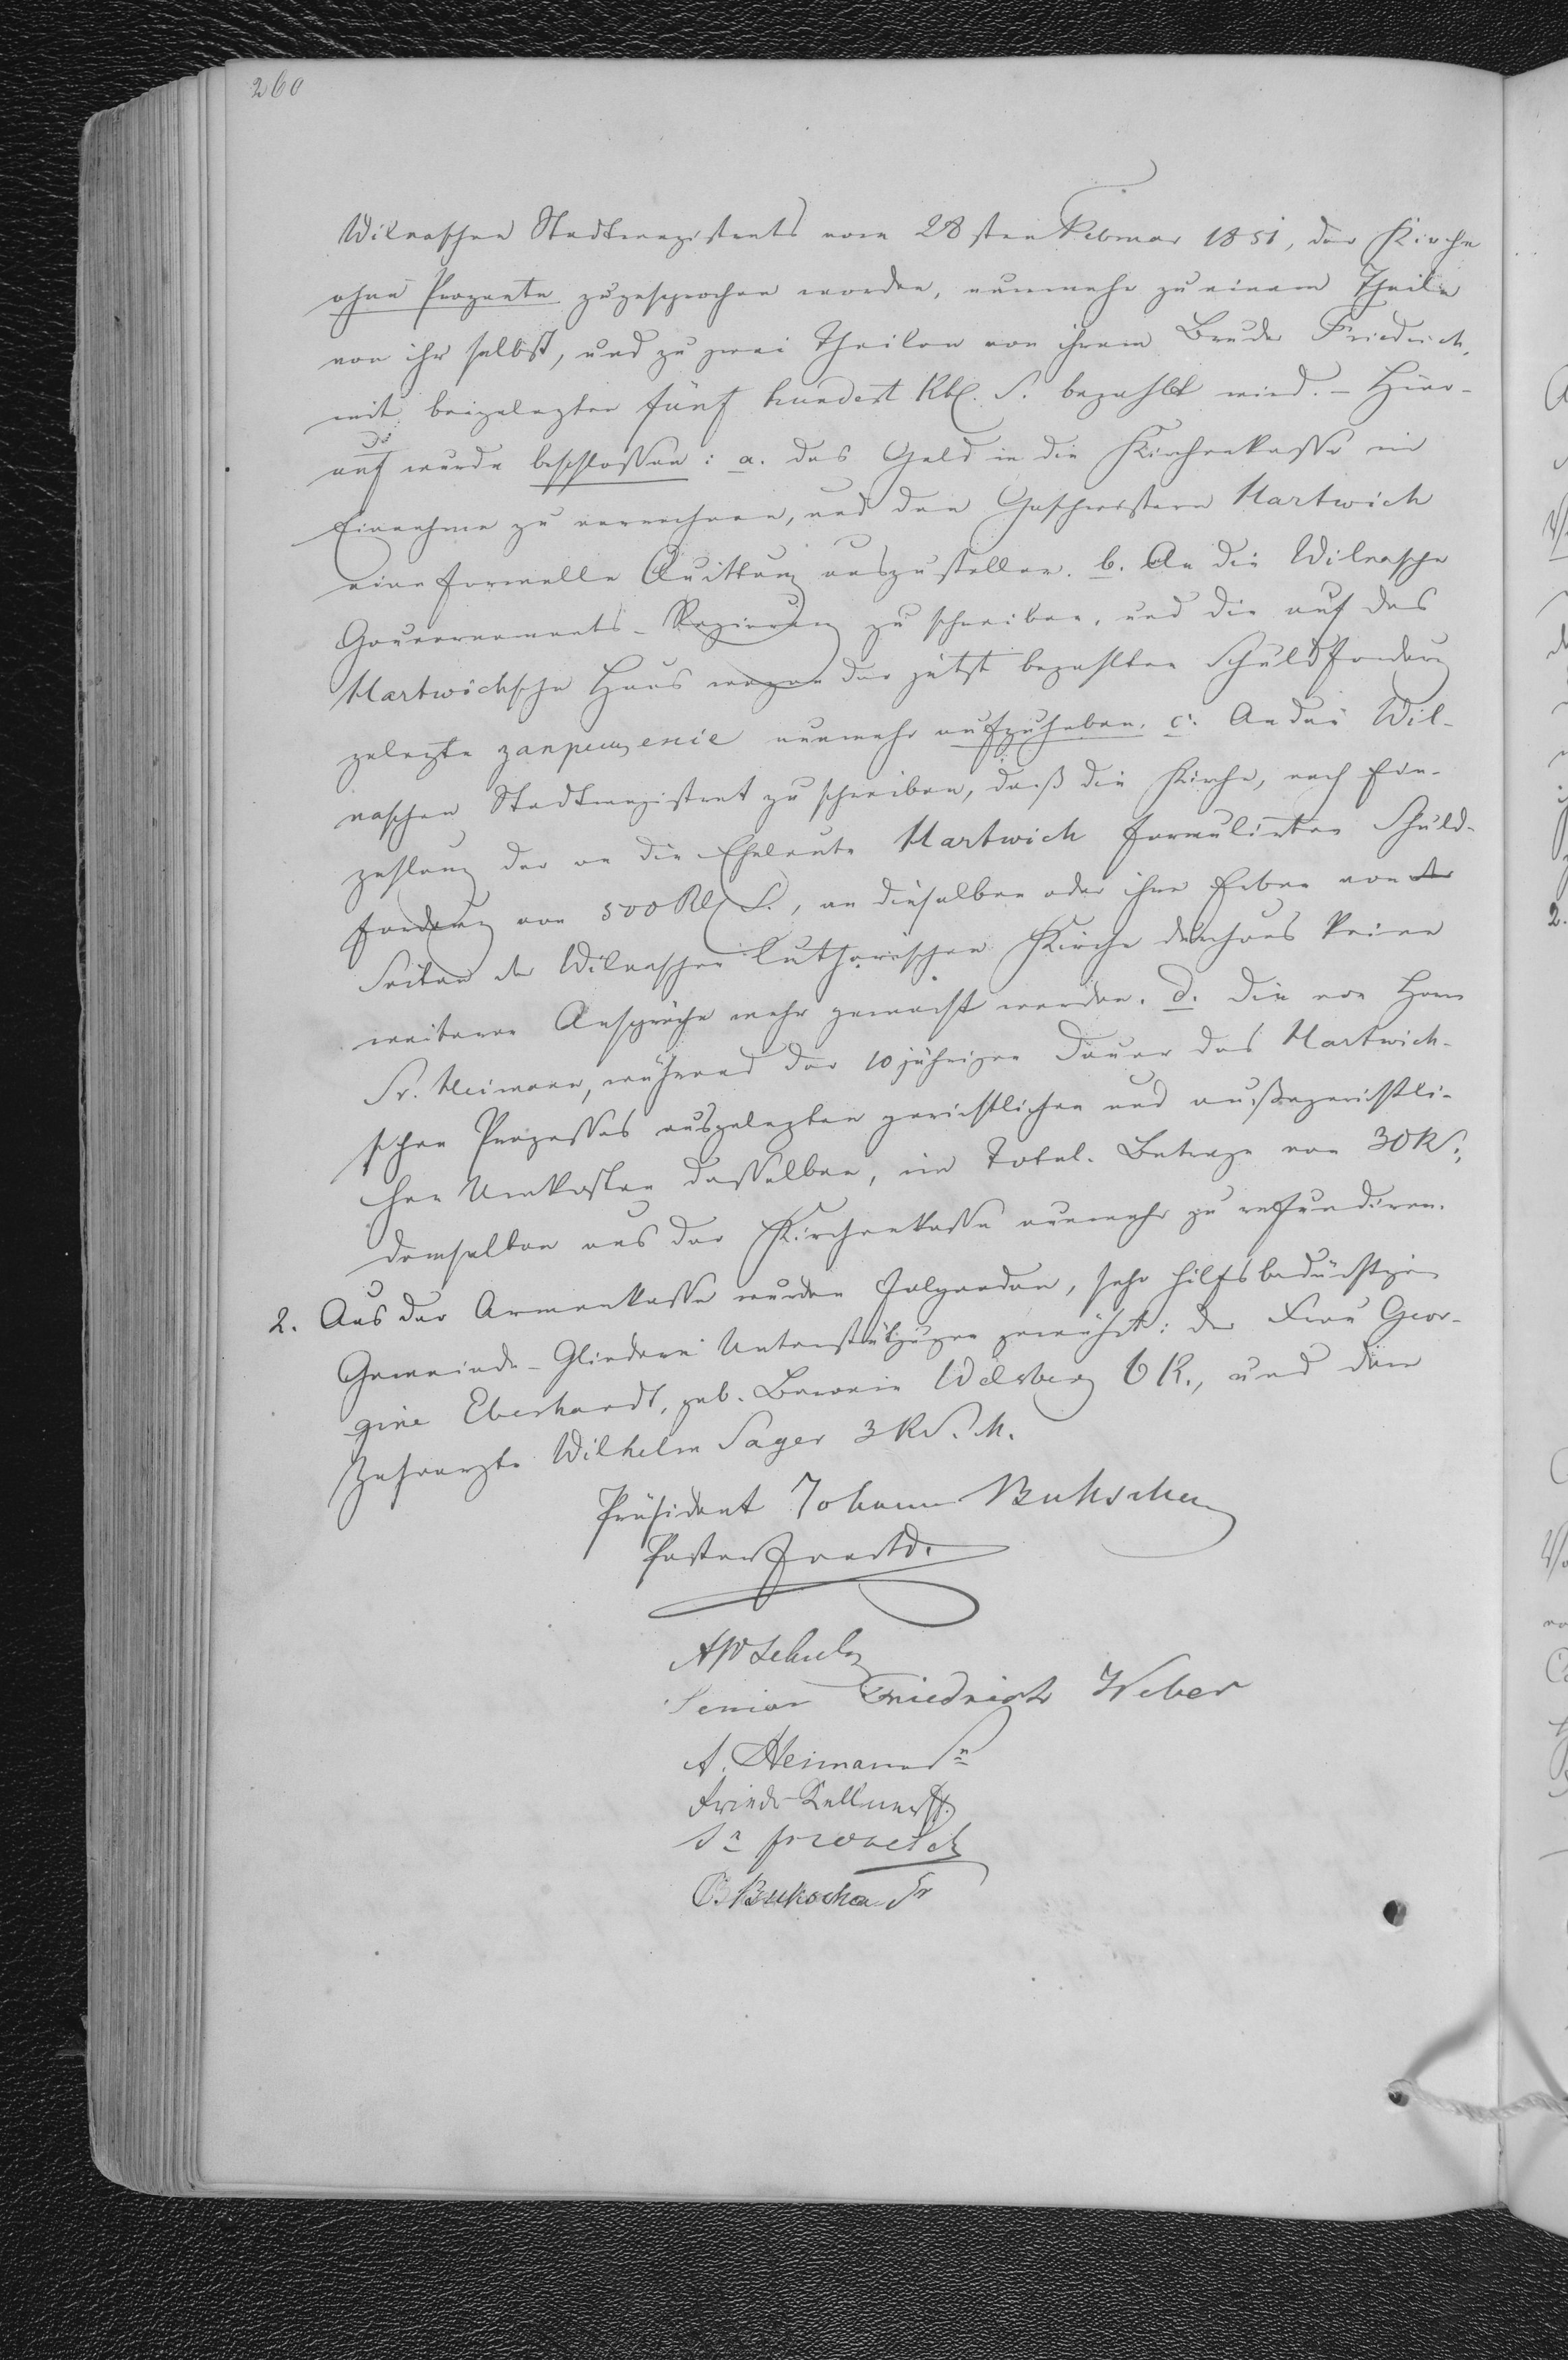 260
Wilnaschen Stadtmagistrats vom 28sten Februar 1851, der Kirche
ohne Prozente zugesprochen worden, nunmehr zu einem Theile
von ihr selbst, und zu zwei Theilen von ihrem Bruder Friedrich,
mit beigelegten fünf hundert Rbl. S. bezahlt wird. – Hier-
auf wurde beschlossen: a. das Geld in die Kirchenkasse in
Einnahme zu verrechnen, und den Geschwistern Hartwich
eine formelle Quittung auszustellen. b. An die Wilnasche
Gouvernements-Regierung zu schreiben, und die auf das
Hartwichsche Haus wegen der jetzt bezahlten Schuldforderung
gelegte запрещение nunmehr aufzuheben. c. An den Wil-
naschen Stadtmagistrat zu schreiben, daß die Kirche, nach Ein-
zahlung der an die Eheleute Hartwich formulirten Schuld-
forderung von 500 Rbl. S., an dieselben oder ihre Erben von
Seiten der Wilnaschen lutherischen Kirche durchaus keine
weiteren Ansprüche mehr gemacht werden. d. Die von Herrn
Sr. Heimann, während der 10jährigen Dauer des Hartwich-
schen Prozesses ausgelegten gerichtlichen und außergerichtli-
chen Unkosten desselben, im Total-Betrage von 30 R.
demselben aus der Kirchenkasse nunmehr zu refundiren.
2. Aus der Armenkasse wurden folgenden, sehr hilfsbedürftigen
Gemeinde-Gliedern Unterstützungen gewährt: der Frau Geor-
gine Eberhardt, geb. Baronin Wilsberg 6 R., und dem
Zahnarzte Wilhelm Sager 3 R. S. M.
Präsident Johann Bukscha
Pastor
AW Schulz
Senior Friedrich Weber
A. Heimann Sr
Friedr. Kellner
Sr
B. Bukscha Sr